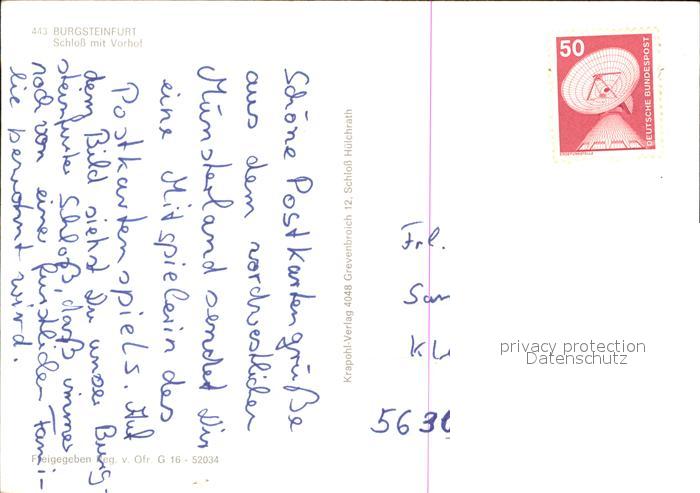 443 BURGSTEINFURT
Schloß mit Vorhof
Schöne Postkartengrüße
aus dem nordwestlichen
Münsterland sendet Dir
eine Mitspielerin des
Postkartenspiels. Auf
dem Bild siehst Du unser Burg-
steinfurter Schloß, daß immer
noch von einer fürstlichen Fami-
lie bewohnt wird.
Freigegeben Reg. v. Ofr. G 16 - 52034
Krapohl-Verlag 4048 Grevenbroich 12, Schloß Hülchrath
50
DEUTSCHE BUNDESPOST
ERDEFUNKSTELLE
Frl.
563
privacy protection
Datenschutz